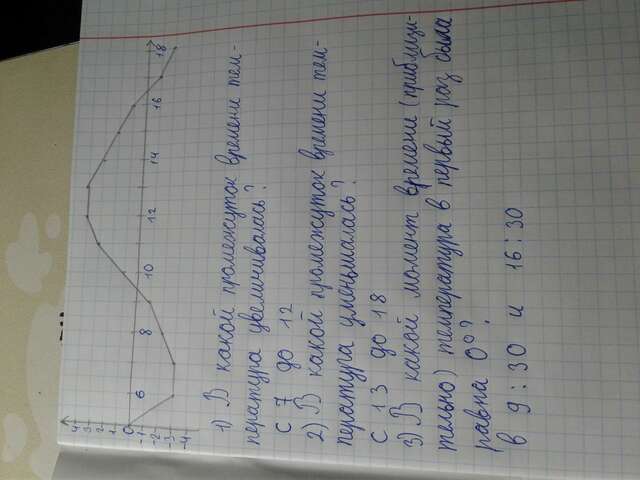 4
3
2
1
0
-1
-2
-3
-4
6 8 10 12 14 16 18
1) В какой промежуток времени тем-
пература увеличивалась?
С 7 до 12
2) В какой промежуток времени тем-
пература уменьшалась?
С 13 до 18
3) В какой момент времени (приблизи-
тельно) температура в первый раз была
равна 0°?
в 9:30 и 16:30